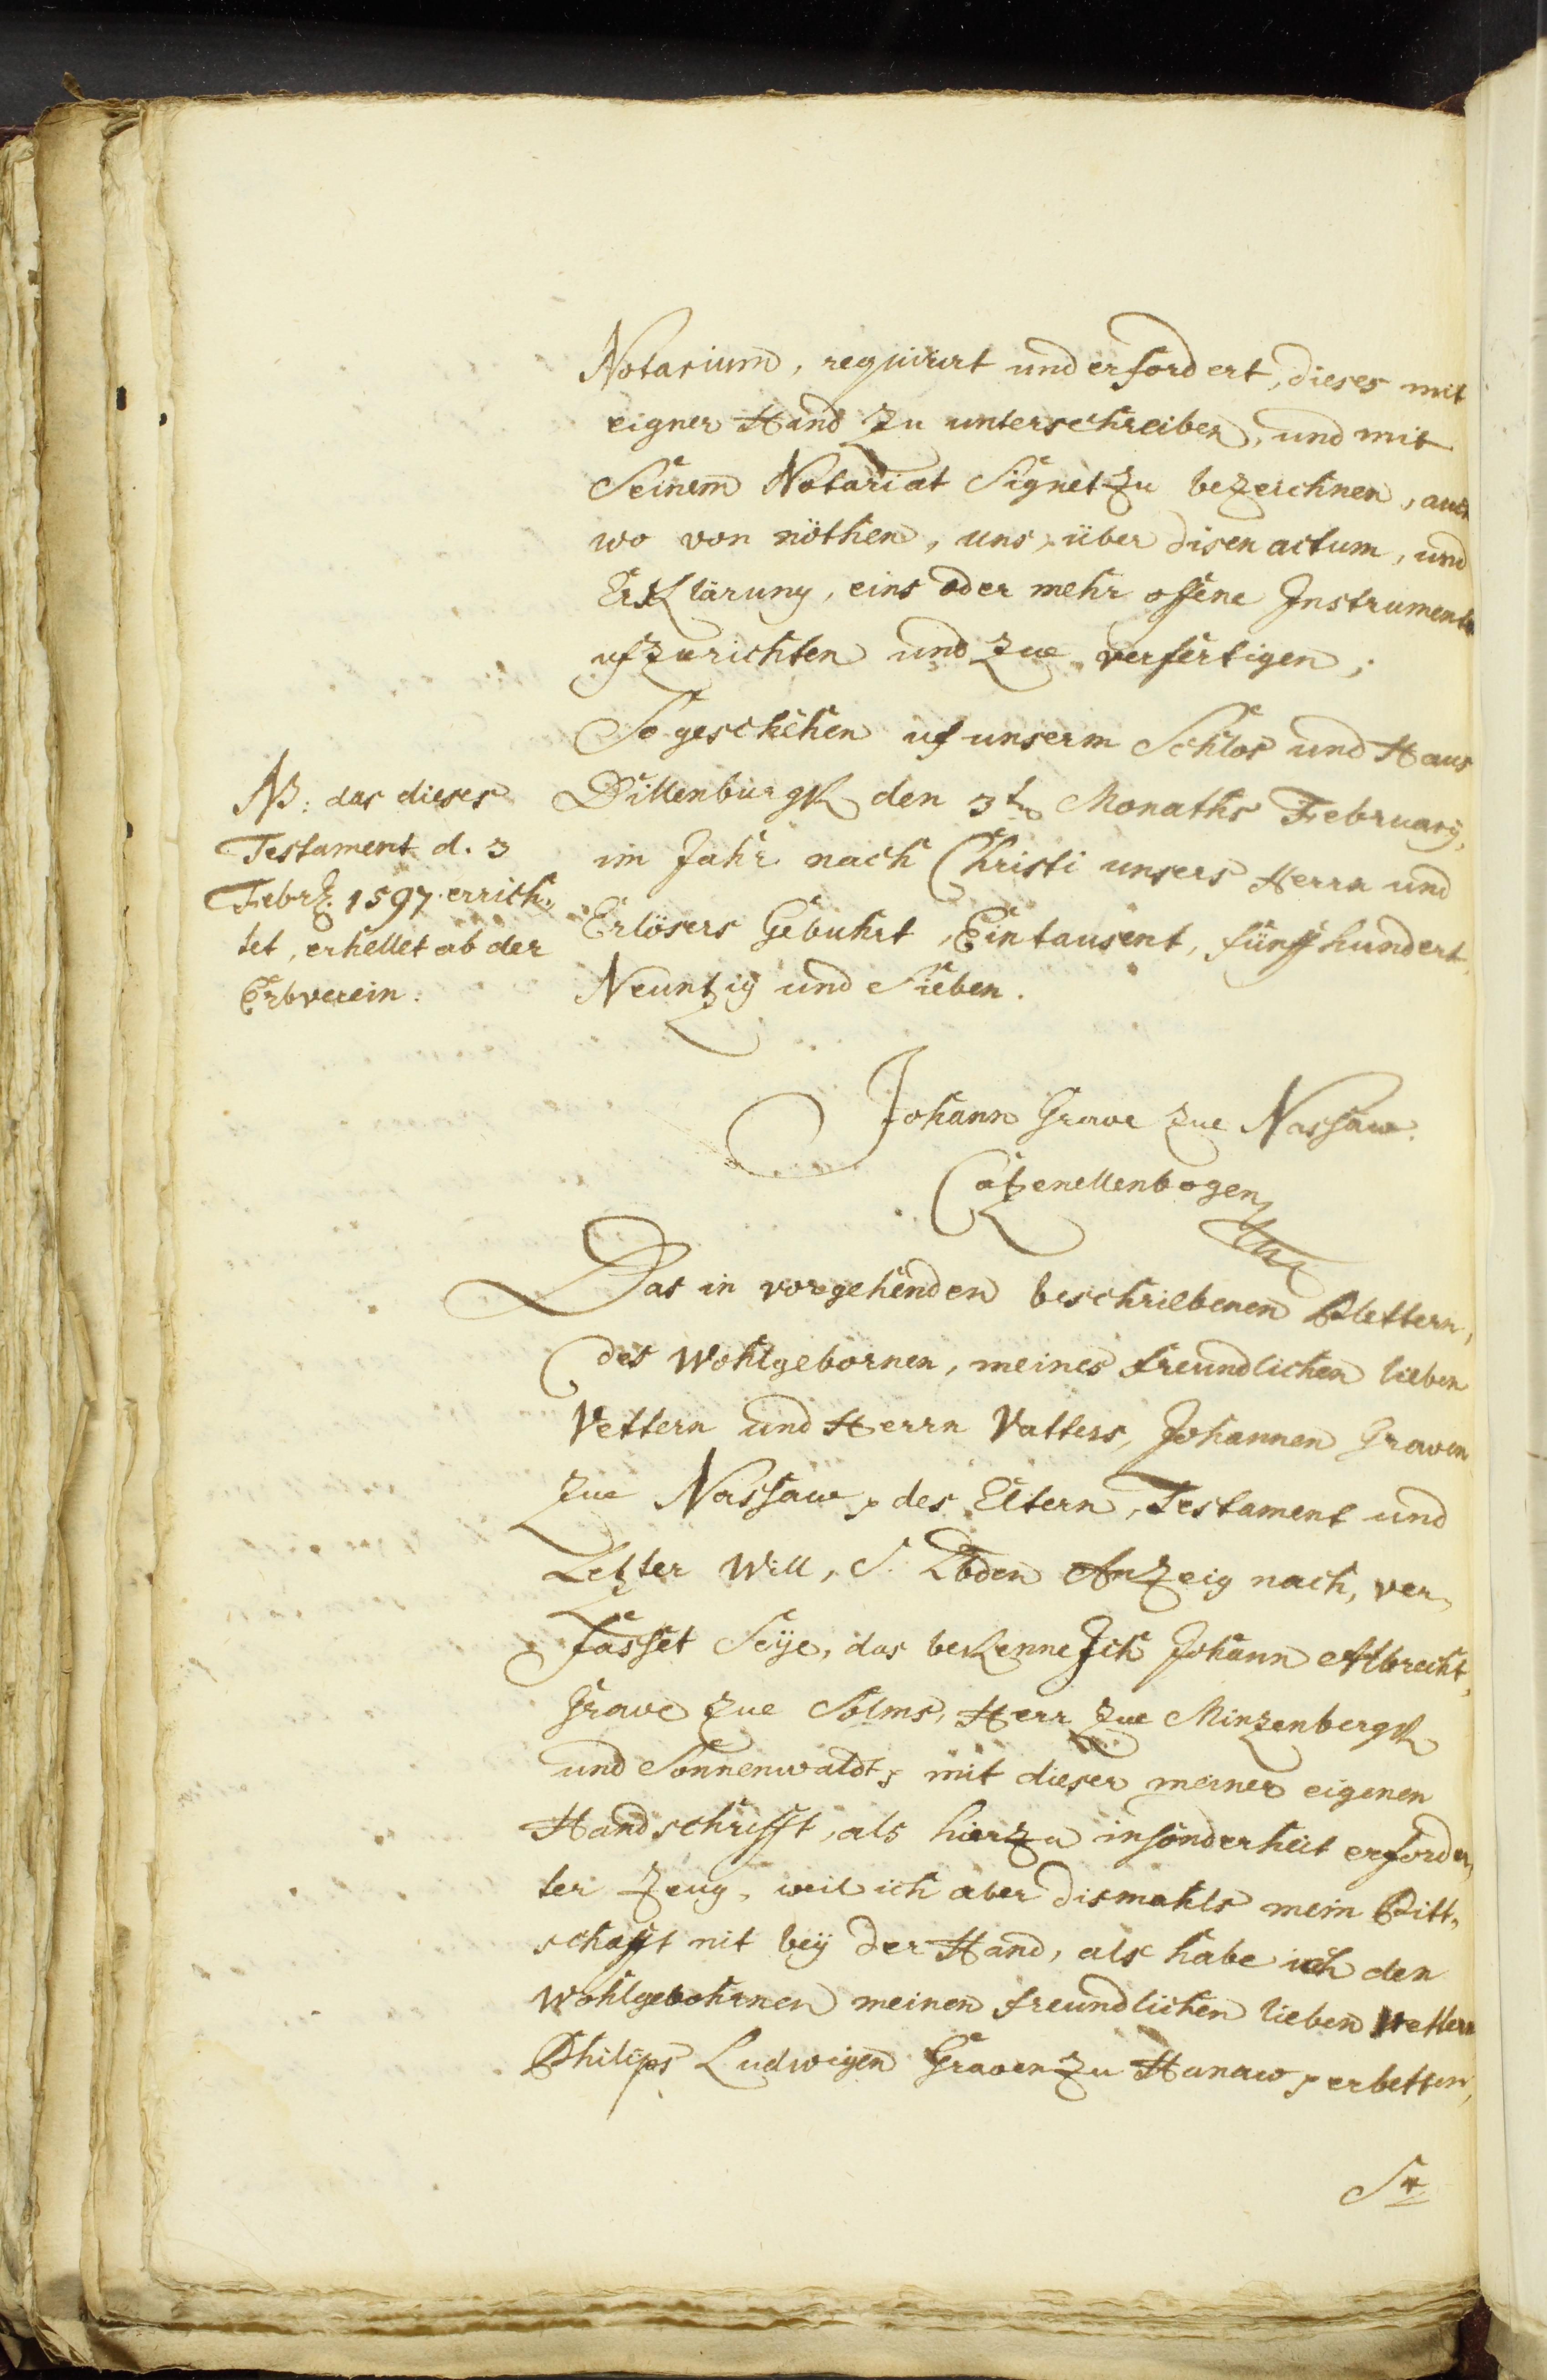 Notarium, requirirt und erfordert, dieses mit
eigner Hand zu unterschreiben, und mit
Seinem Notariat Signet zu bezeichnen, auch
wo von nöthen, uns, über disen actum, und
Erklärung, eins oder mehr offene Instrumenta
ufzurichten und zue verfertigen;
So geschehen uf unserm Schlos und Haus
Dillenburgk den 3ten Monaths February,
im Jahr nach Christi unsers Herrn und
Erlösers Gebuhrt, Eintausent, fünffhundert,
Neuntzig und Sieben.
NB: das dieses
Testament d. 3
Febr. 1597. errich,
tet, erhellet ab der
Erbverein:
Johann Grave zue Nassaw.
Catzenellenbogen
Das in vorgehenden beschriebenen Blettern,
des Wohlgebornen, meines freundlichen lieben
Vettern und Herrn Vatters, Johannen Graven
zue Nassaw, des Eltern, Testament und
Letzter Will, S. Lbden Anzeig nach, ver,
fasset Seye, das bekenne Ich Johann Albrecht,
Grave zue Solms, Herr zue Minzenbergk
und Sonnenwaldt, mit dieser meiner eigenen
Handschrifft, als hierzu insonderheit erforder,
ter Zeug, weil ich aber dismahls mein Pitt,
schafft nit bey der Hand, als habe ich den
Wohlgebohrnen meinen freundlichen lieben Vettern
Philips Ludwigen Graven zu Hanaw, erbetten,